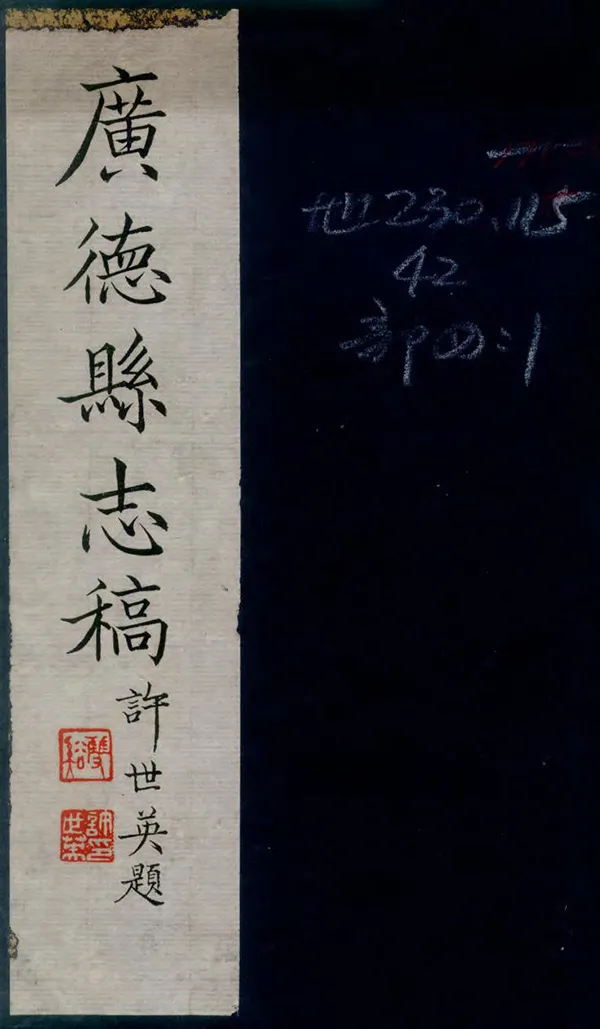 廣德縣志稿
許世英題
雙谿
許世英印
世230.115
42
部四:1